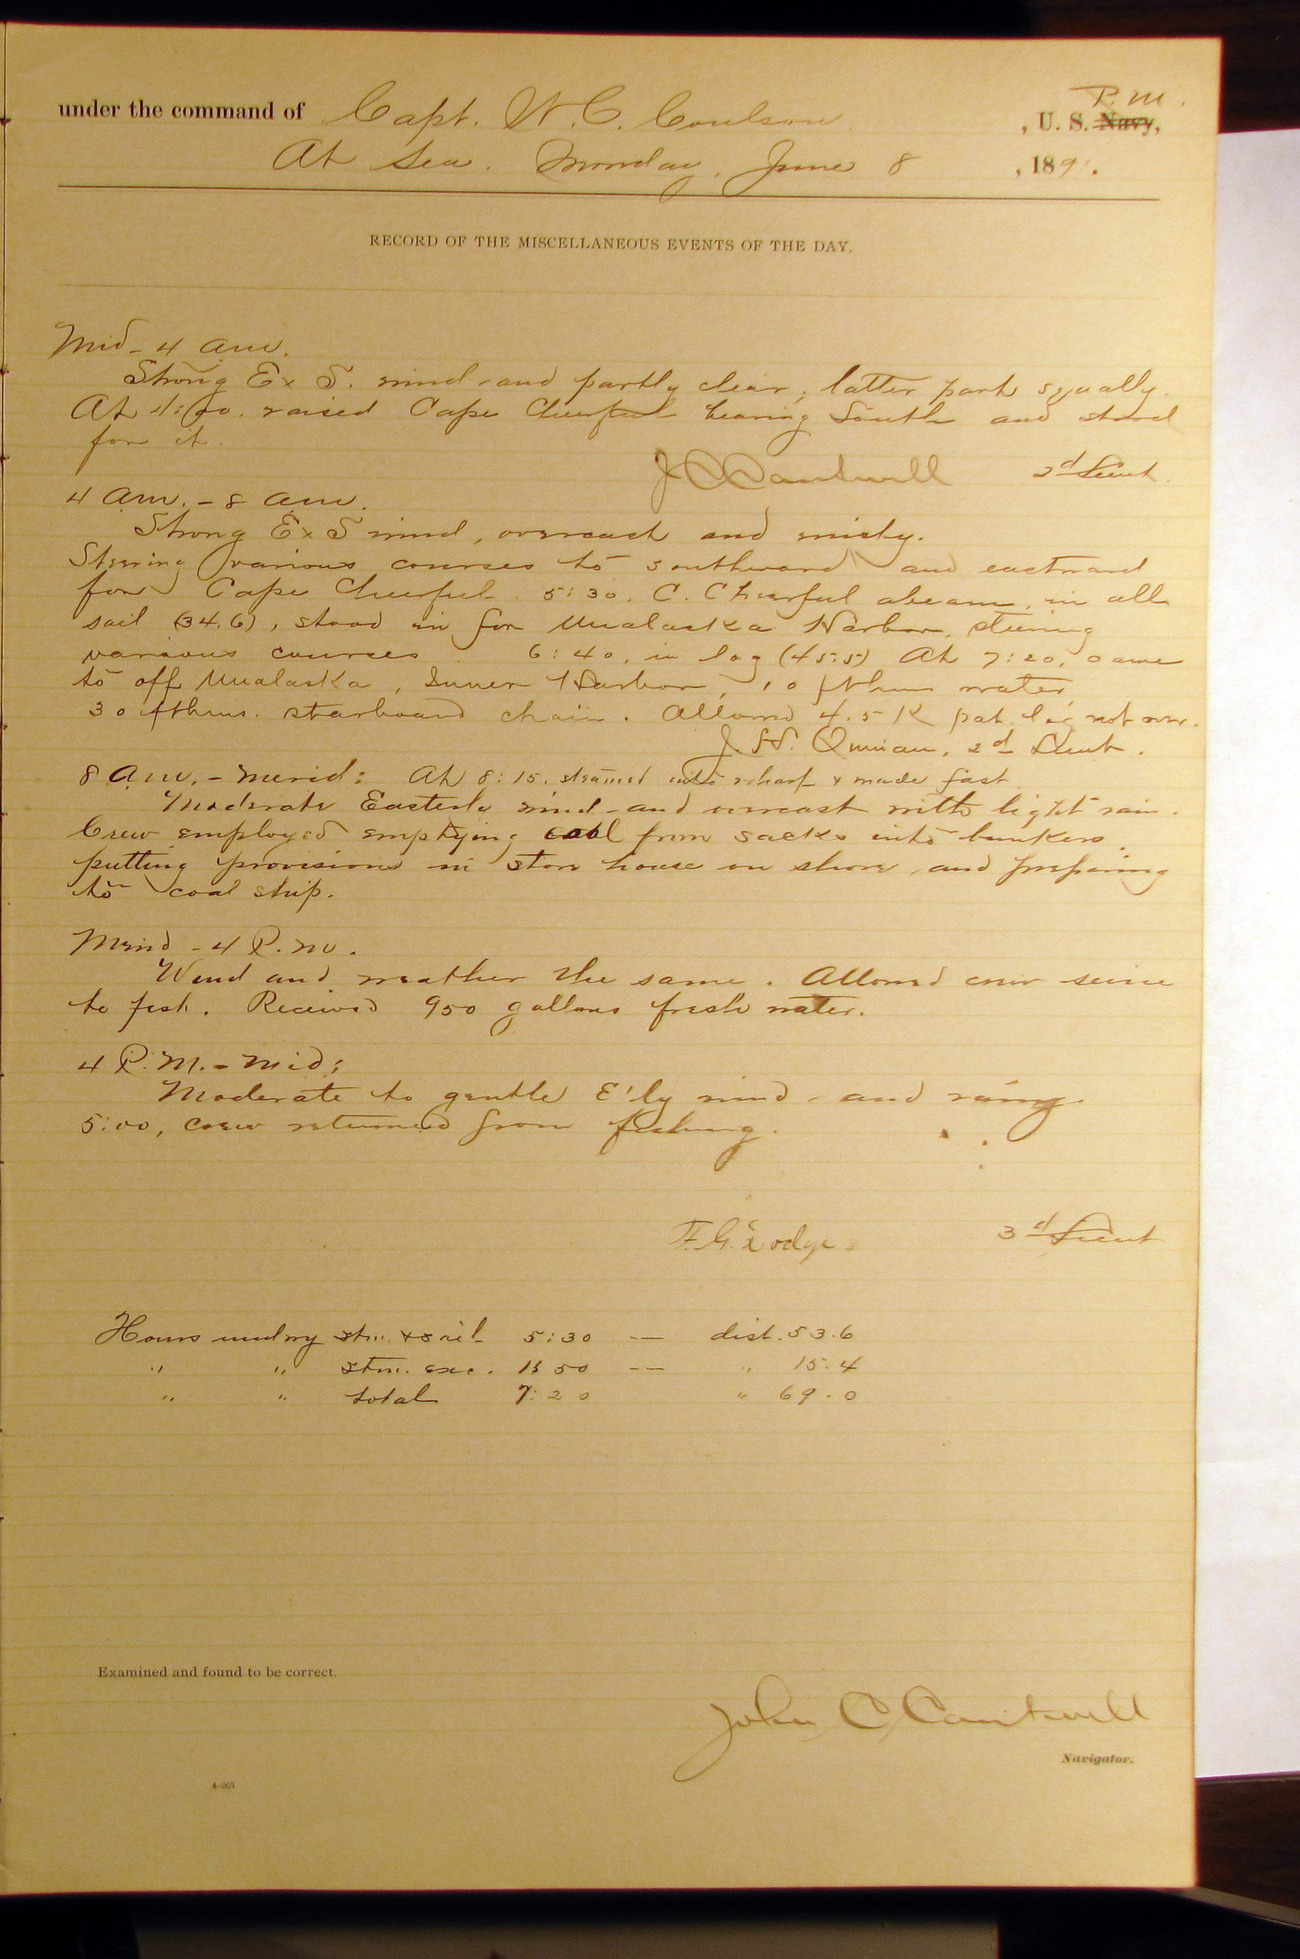 under the command of Capt. W. C. Coulson, U. S. Navy, R. M.
At Sea. Monday, June 8, 1891.
RECORD OF THE MISCELLANEOUS EVENTS OF THE DAY.
Mid - 4 am.
Strong E x S. wind and partly clear; latter part squally.
At raised Cape Cheerful bearing South and stood
for it.
J C Cantwell 2d Lieut.
4 am. - 8 am.
Strong E x S wind, overcast and misty.
Steering various courses to southward and eastward
for Cape Cheerful. 5:30. C. Cheerful abeam, in all
sail (34.6), stood in for Unalaska Harbor, steering
various courses 6:40, in log (45.5) At 7:20, came
to off Unalaska, Inner Harbor, 10 fthms water
30 fthms. starboard chain. Allowed 4.5 K pat. log not over.
J. H. Quinan, 2d Lieut.
8 am. - merid: At 8:15. steamed into wharf & made fast
Moderate Easterly wind and overcast with light rain.
Crew employed emptying coal from sacks into bunkers,
putting provisions in store house on shore, and preparing
to coal ship.
Merid - 4 P.m.
Wind and weather the same. Allowed crew seine
to fish. Received 950 gallons fresh water.
4 P.M. - Mid:
Moderate to gentle E'ly wind and rainy.
5:00, crew returned from fishing.
F. G. Dodge 3d Lieut
Hours undwy stm. & sail 5:30 — dist. 53.6
" " stm. exc. 1:50 — " 15.4
" " total 7:20 " 69.0
Examined and found to be correct.
John C Cantwell
Navigator.
4-265